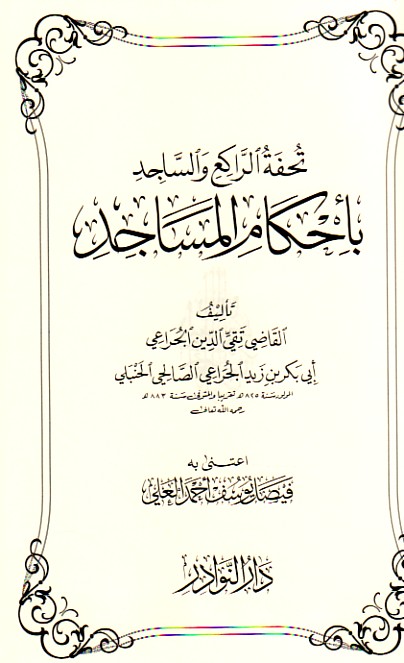 تُحْفَةُ الرَّاكِعِ وَالسَّاجِدِ
بِأَحْكَامِ الْمَسَاجِدِ
تَأْلِيفُ
القَاضِي تَقِيِّ الدِّينِ الجُرَاعِي
أَبِي بَكْرِ بنِ زَيدِ الجُرَاعِي الصَّالِحِي الحَنْبَلِي
المولود سنة ٨٢٥ هـ تقريبا والمتوفى سنة ٨٨٣ هـ
رحمه الله تعالى
اعتنى به
فيصل يوسف أحمد العلي
دار النوادر